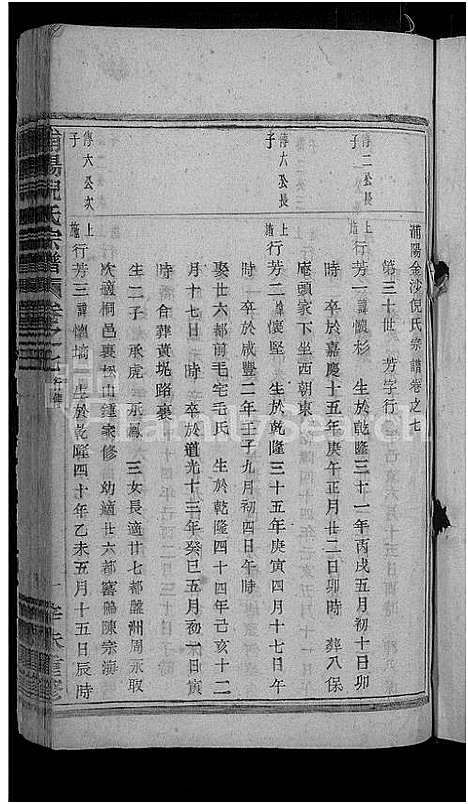 浦陽金沙倪氏宗譜卷之七
第三十世 芳字行
停二公長子
上
行芳一諱懷杉 生於乾隆三十一年丙戌五月初十日卯
時 卒於嘉慶十五年庚午正月廿二日卯時 葬八保
庵頭家下坐西朝東
停六公長子
上
行芳二諱懷堅 生於乾隆三十五年庚寅四月十七日午
時 卒於咸豐二年壬子九月初四日午時
娶廿六都前毛宅毛氏 生於乾隆四十四年己亥十二
月十七日 時 卒於道光十三年癸巳五月初一日寅
時 合葬黃坭路裏
生二子 承虎 承鳳 三女長適廿七都麓洲周永取
次適桐邑裏松山鍾家修 幼適廿六都窖鵶陳宗海
停六公次子
上
行芳三諱懷墒 生於乾隆四十年乙未五月十五日辰時
浦陽倪氏宗譜 卷之七 行傳
一 辛未重修
FamilySearch